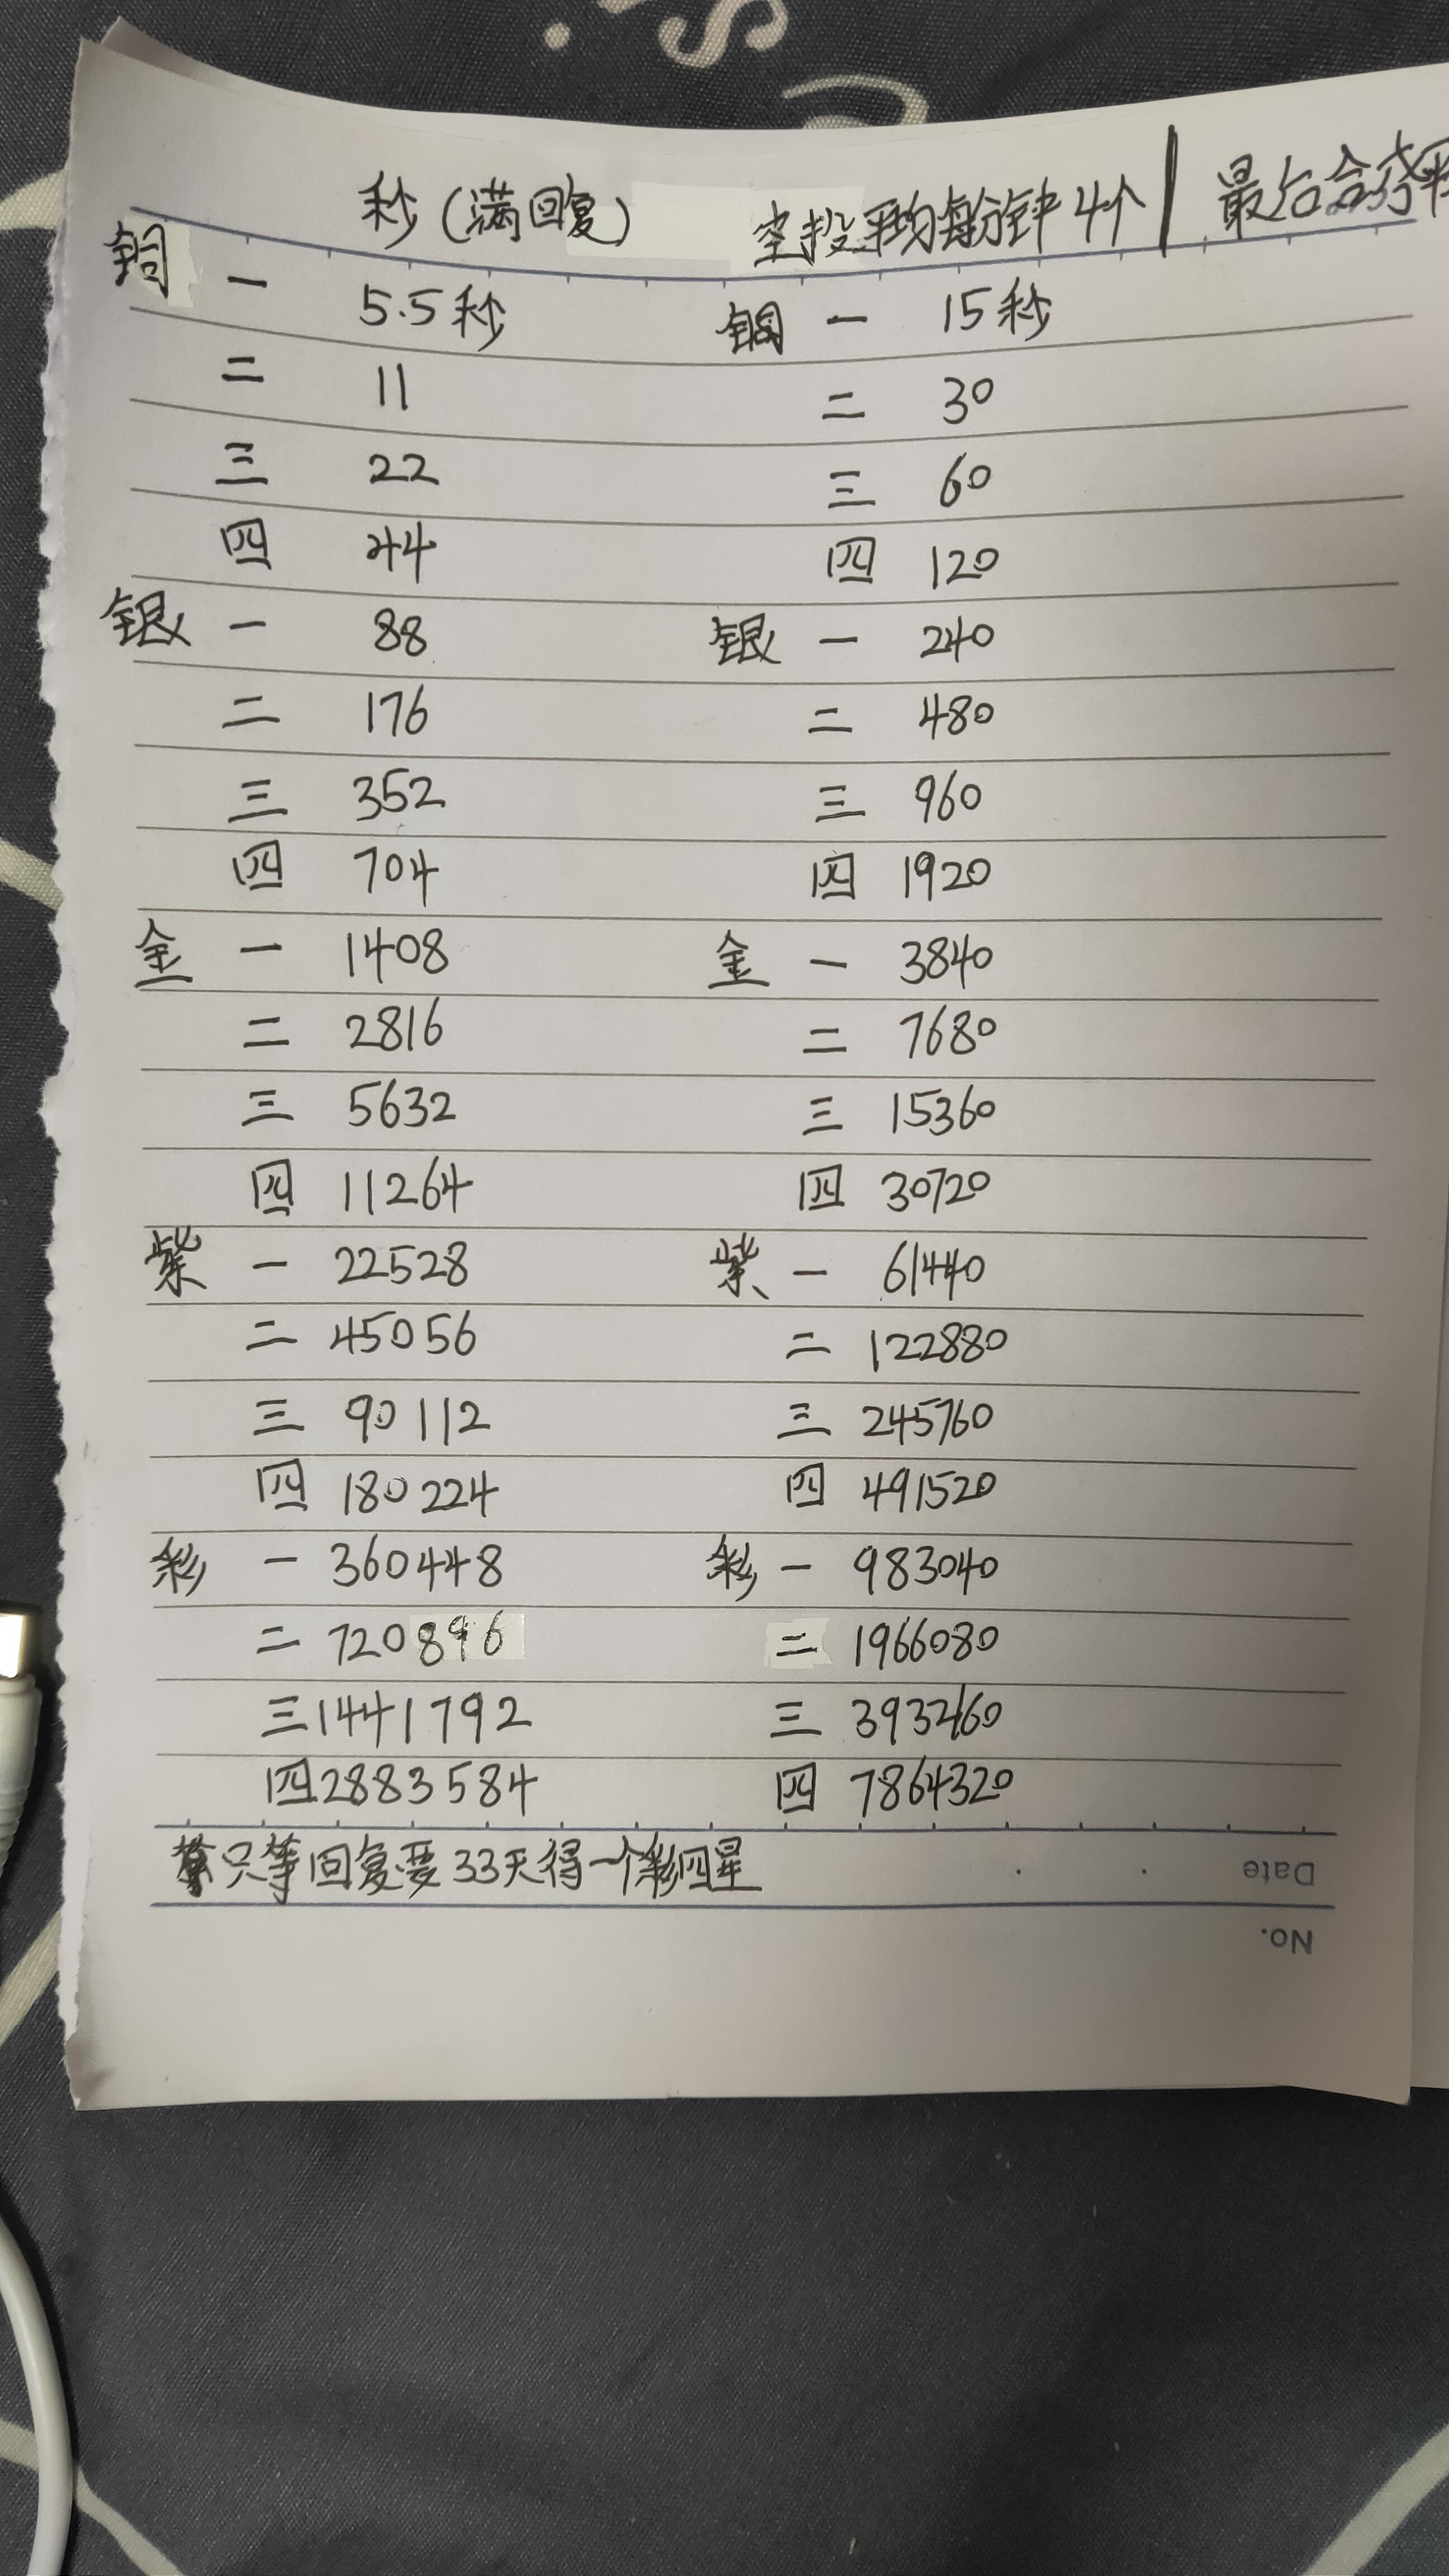 秒(满回复) 空投平均每分钟4个 | 最后合成彩
铜 一 5.5秒 铜 一 15秒
二 11 二 30
三 22 三 60
四 44 四 120
银 一 88 银 一 240
二 176 二 480
三 352 三 960
四 704 四 1920
金 一 1408 金 一 3840
二 2816 二 7680
三 5632 三 15360
四 11264 四 30720
紫 一 22528 紫 一 61440
二 45056 二 122880
三 90112 三 245760
四 180224 四 491520
彩 一 360448 彩 一 983040
二 720896 二 1966080
三 1441792 三 3932160
四 2883584 四 7864320
只等回复要33天得一个彩四星
Date
No.